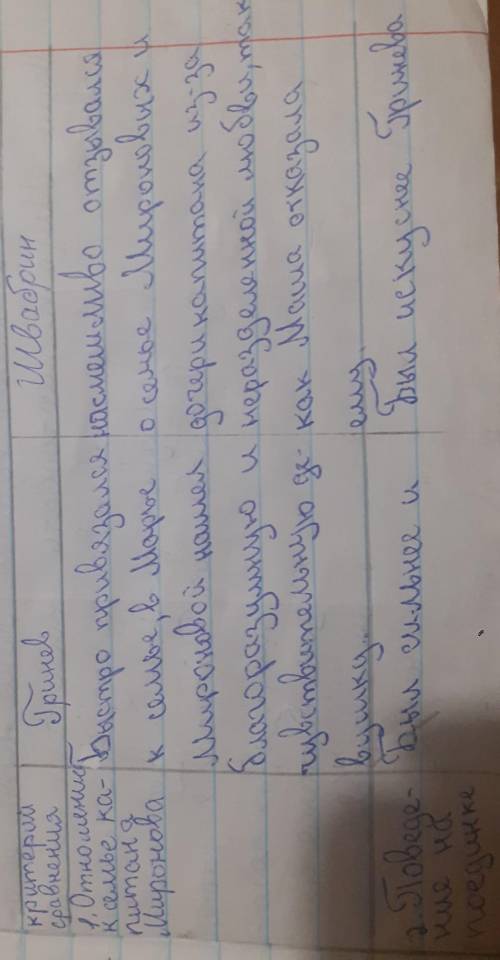 критерии сравнения | Гринев | Швабрин
1. Отношение | Быстро привязался | насмешливо отзывался
к семье ка- | к семье, в Марье | о семье Мироновых и
питана | Мироновой нашел | дочери капитана из-за
Миронова | благоразумную и | неразделенной любви, так
чувствительную де- | как Маша отказала
вушку. | ему.
2. Поведе- | Был сильнее и | Был искуснее Гринева
ние на
поединке